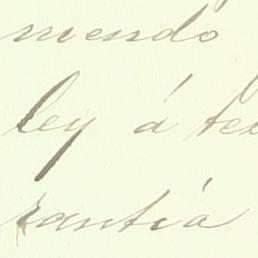 mendo
ley á te
rantiá